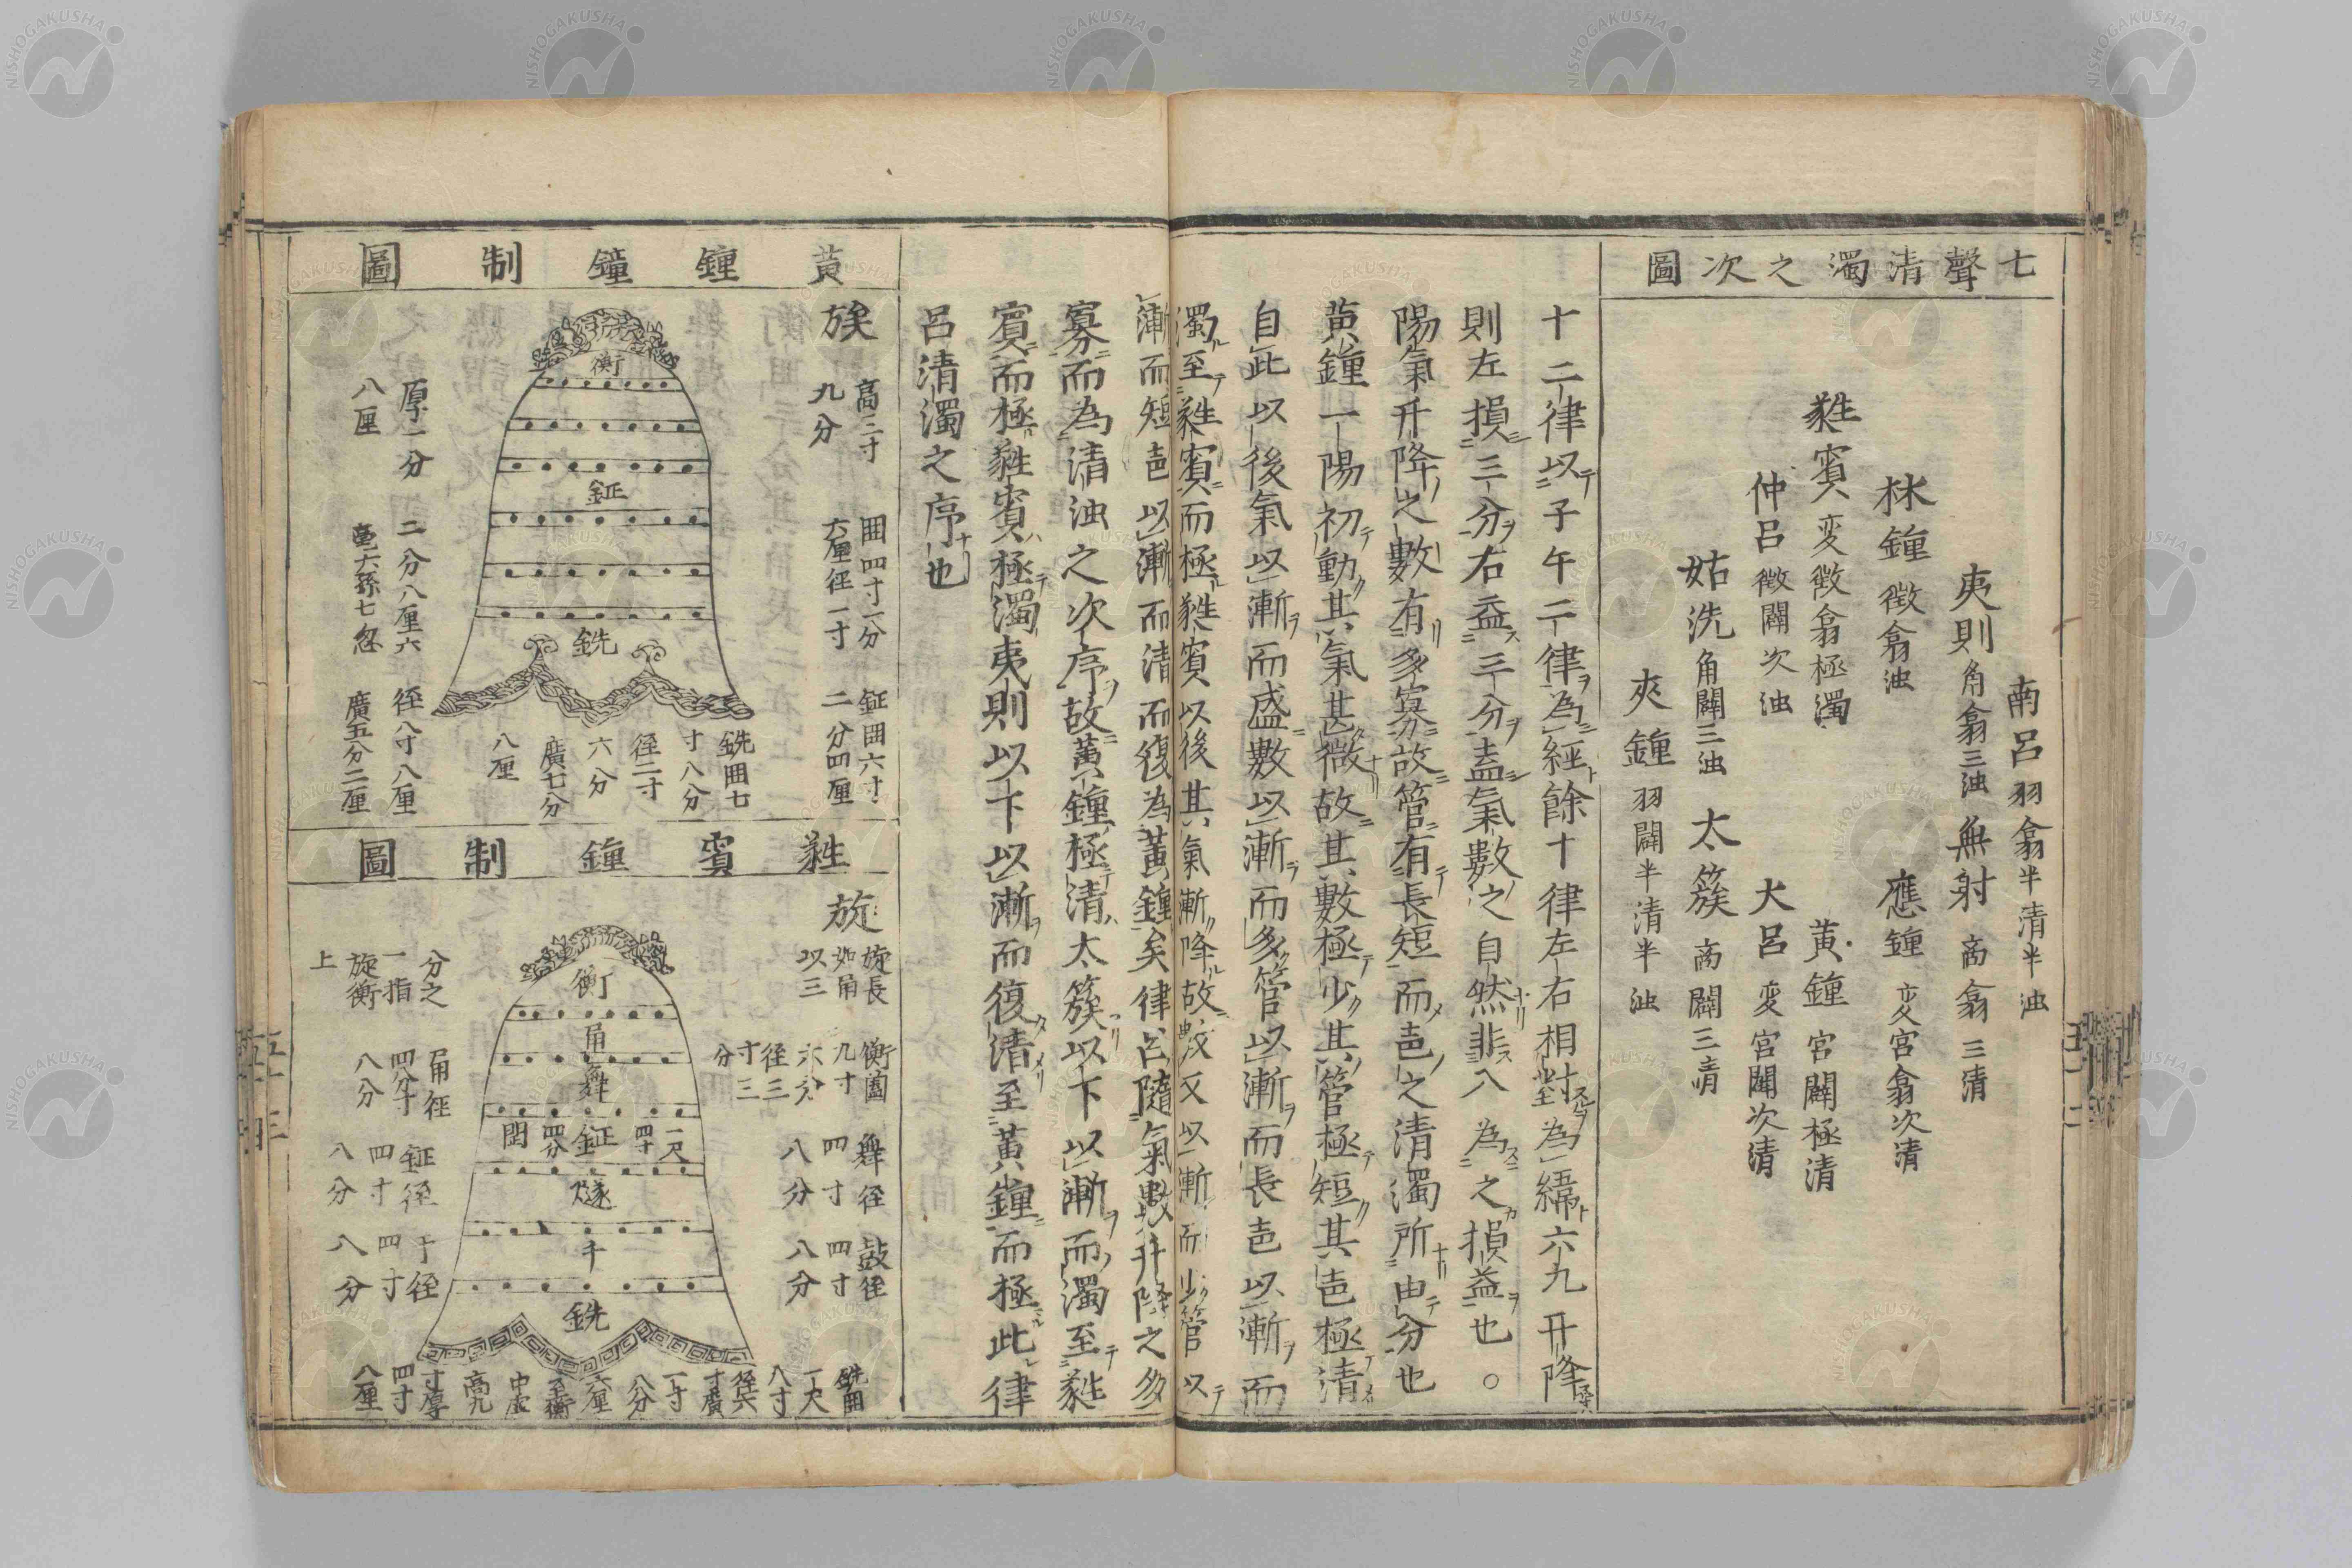 七聲清濁之次圖
南呂羽翕半清半浊
夷則角翕三浊
無射商翕三清
林鐘徴翕浊
應鐘变宮翕次清
蕤賓变徴翕極濁
黃鐘宮闢極清
仲呂徴闢次浊
大呂变宮闢次清
姑洗角闢三浊
太簇商闢三清
夾鐘羽闢半清半浊
十二律以子午二律為經餘十律左右相對為緯六九升降
則左損三分右益三分盖氣數之自然非人為之損益也○
陽氣升降之數有多寡故管有長短而㐫之清濁所由分也
黃鐘一陽初動其氣甚微故其數極少其管極短其㐫極清
自此以後氣以漸而盛數以漸而多管以漸而長㐫以漸而
濁至蕤賓而極蕤賓以後其氣漸降故數又以漸而少管以
漸而短㐫以漸而清而復為黃鐘矣律呂隨氣數升降之多
寡而為清浊之次序故黃鐘極清太簇以下以漸而濁至蕤
賓而極蕤賓極濁夷則以下以漸而復清至黃鐘而極此律
呂清濁之序也
黃鍾鐘制圖
族
高三寸
九分
囲四寸二分
六厘径一寸
鉦囲六寸
二分四厘
衡
鉦
銑
銑囲七
寸八分
径二寸
六分
廣七分
八厘
厚一分
八厘
二分八厘六
毫六豩七忽
径八寸八厘
廣五分二厘
蕤賓鐘制圖
旋
旋長
如甬
以三
分之
一指
旋衡
上
衡
甬
舞
鉦
隧
于
銑
衡圍
九寸
六分
径三
寸三
分
舞径
四寸
八分
鼓径
四寸
八分
甬径
四寸
八分
鉦径
四寸
八分
于径
四寸
八分
一尺
四寸
四分
銑囲
一尺
八寸
径六
寸廣
一寸
八分
六厘
高九
寸厚
四寸
八厘